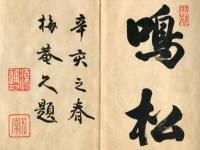 鳴松
辛亥之春
梅菴久題